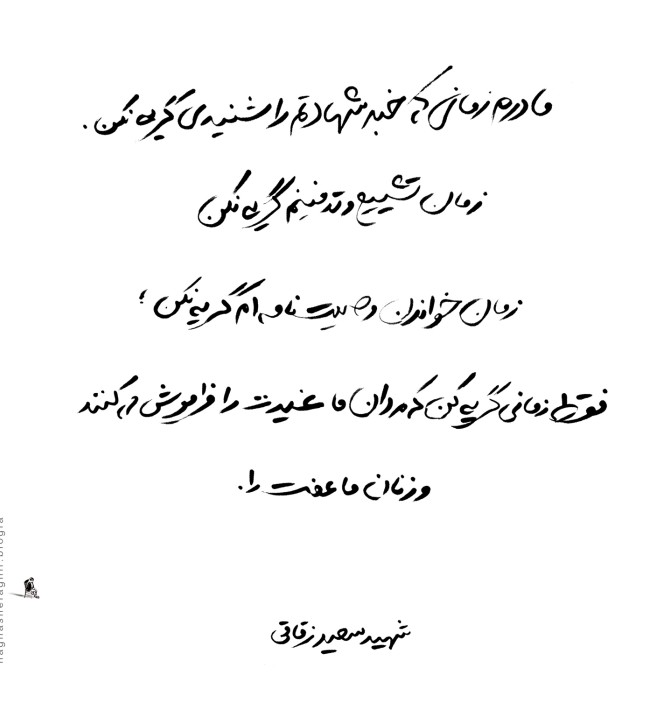 مادرم زمانی که خبر شهادتم را شنیدی گریه نکن.
زمان تشییع و تدفینم گریه نکن
زمان خواندن وصیت نامه ام گریه نکن؛
فقط زمانی گریه کن که مردان ما غیرت را فراموش می کنند
و زنان ما عفت را.
شهید سعید زقاقی